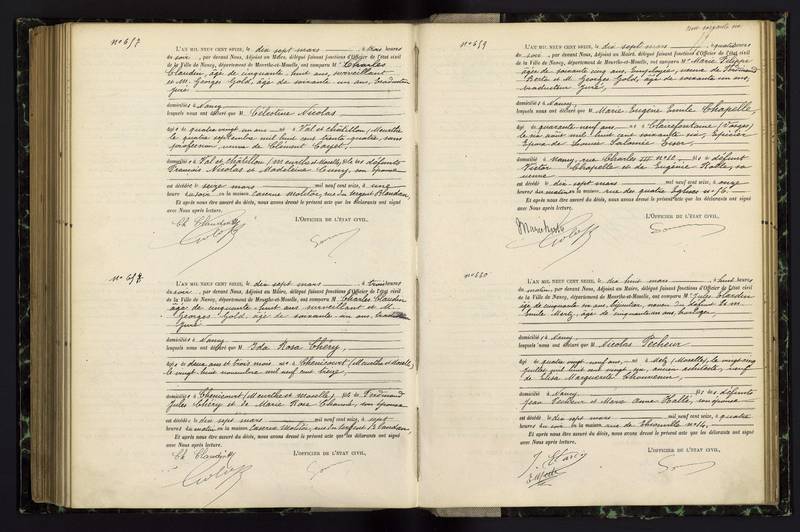 N° 657
L'AN MIL NEUF CENT SEIZE, le dix sept mars, à trois heures
du soir, par devant Nous, Adjoint au Maire, délégué faisant fonctions d'Officier de l'état civil
de la Ville de Nancy, département de Meurthe-et-Moselle, ont comparu M. Charles
Claudin, âgé de cinquante huit ans, surveillant
et M. Georges Gold, âgé de soixante un ans, traducteur
juré
domiciliés à Nancy
lesquels nous ont déclaré que M. Célestine Nicolas
âgée de quatre vingt un ans née à Val et châtillon (Meurthe
le quatre septembre mil huit cent trente quatre, sans
profession, veuve de Clément Cayet,
domiciliée à Val et châtillon (Meurthe et Moselle) fille de défunts
François Nicolas et Madeleine Cuny, son épouse
est décédée le seize mars mil neuf cent seize, à onze
heures du soir en la maison caserne molitor, rue du sergent Blandan,
Et après nous être assuré du décès, nous avons dressé le présent acte que les déclarants ont signé
avec Nous après lecture.
L'OFFICIER DE L'ÉTAT CIVIL,
Ch Claudin
N° 658
L'AN MIL NEUF CENT SEIZE, le dix sept mars, à trois heures
du soir, par devant Nous, Adjoint au Maire, délégué faisant fonctions d'Officier de l'état civil
de la Ville de Nancy, département de Meurthe-et-Moselle, ont comparu M. Charles Claudin
âgé de cinquante huit ans, surveillant et M.
Georges Gold, âgé de soixante un ans, traducteur
juré
domiciliés à Nancy
lesquels nous ont déclaré que M. Ida Rosa Chéry,
âgée de deux ans et trois mois née à Chenicourt (Meurthe et Moselle)
le vingt huit novembre mil neuf cent treize,
domiciliée à Chenicourt (Meurthe et Moselle), fille de Ferdinand
Jules Chéry et de Marie Rosa, son épouse
est décédée le dix sept mars mil neuf cent seize, à sept
heures du matin en la maison caserne Molitor, rue du sergent Blandan,
Et après nous être assuré du décès, nous avons dressé le présent acte que les déclarants ont signé
avec Nous après lecture.
L'OFFICIER DE L'ÉTAT CIVIL,
Ch Claudin
N° 659
L'AN MIL NEUF CENT SEIZE, le dix sept mars, à quatre heures
du soir, par devant Nous, Adjoint au Maire, délégué faisant fonctions d'Officier de l'état civil
de la Ville de Nancy, département de Meurthe-et-Moselle, ont comparu M. Marie
âgée de soixante cinq ans, employée, veuve de
et M. Georges Gold, âgé de soixante un ans,
traducteur juré,
domiciliés à Nancy,
lesquels nous ont déclaré que M. Marie Eugène Emile Chapelle,
âgé de quarante neuf ans né à Clairefontaine (Vosges)
le six août mil huit cent soixante six, épicier
époux de Louise Salomée
domicilié à Nancy, rue Charles III n° fils de défunt
Victor Chapelle et de Eugénie sa
veuve
est décédé le dix sept mars mil neuf cent seize, à onze
heures du matin en la maison, rue des quatre Eglises n° 76
Et après nous être assuré du décès, nous avons dressé le présent acte que les déclarants ont signé
avec Nous après lecture.
L'OFFICIER DE L'ÉTAT CIVIL,
N° 660
L'AN MIL NEUF CENT SEIZE, le dix huit mars, à huit heures
du matin, par devant Nous, Adjoint au Maire, délégué faisant fonctions d'Officier de l'état civil
de la Ville de Nancy, département de Meurthe-et-Moselle, ont comparu M. Jules
âgé de cinquante six ans, bijoutier, neveu du défunt et M.
Emile Mertz, âgé de cinquante six ans, horloger,
domiciliés à Nancy
lesquels nous ont déclaré que M. Nicolas Pecheur
âgé de quatre vingt neuf ans, né à Metz (Moselle), le vingt cinq
juillet mil huit cent vingt six, ancien veuf
de Elisa Marguerite
domicilié à Nancy fils de défunts
Jean Pecheur et Marie Anne Halle, son épouse
est décédé le dix sept mars mil neuf cent seize, à quatre
heures du soir en la maison rue de thionville n° 14,
Et après nous être assuré du décès, nous avons dressé le présent acte que les déclarants ont signé
avec Nous après lecture.
L'OFFICIER DE L'ÉTAT CIVIL,